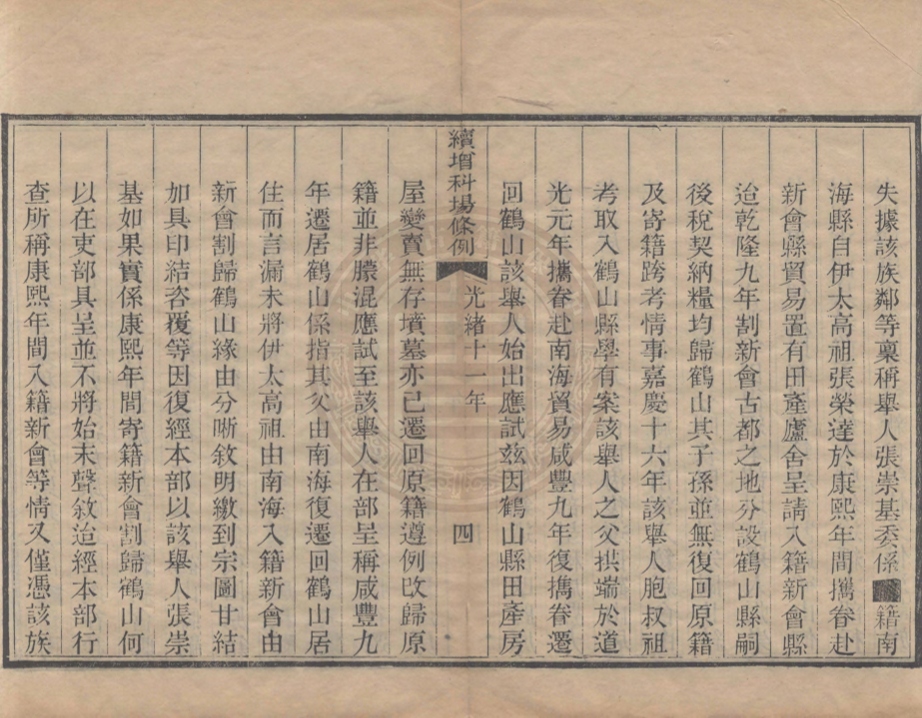 失據該族鄰等稟稱舉人張崇基委係籍南
海縣自伊太高祖張榮達於康熙年間攜眷赴
新會縣貿易置有田產廬舍呈請入籍新會縣
迨乾隆九年割新會古都之地分設鶴山縣嗣
後稅契納糧均歸鶴山其子孫並無復回原籍
及寄籍跨考情事嘉慶十六年該舉人胞叔祖
考取入鶴山縣學有案該舉人之父拱端於道
光元年攜眷赴南海貿易咸豐九年復攜眷遷
回鶴山該舉人始出應試茲因鶴山縣田產房
續增科場條例 光緒十一年 四
屋變賣無存墳墓亦已遷回原籍遵例改歸原
籍並非朦混應試至該舉人在部呈稱咸豐九
年遷居鶴山係指其父由南海復遷回鶴山居
住而言漏未將伊太高祖由南海入籍新會由
新會割歸鶴山緣由分晰敘明繳到宗圖甘結
加具印結咨覆等因復經本部以該舉人張崇
基如果實係康熙年間寄籍新會割歸鶴山何
以在吏部具呈並不將始末聲敘迨經本部行
查所稱康熙年間入籍新會等情又僅憑該族